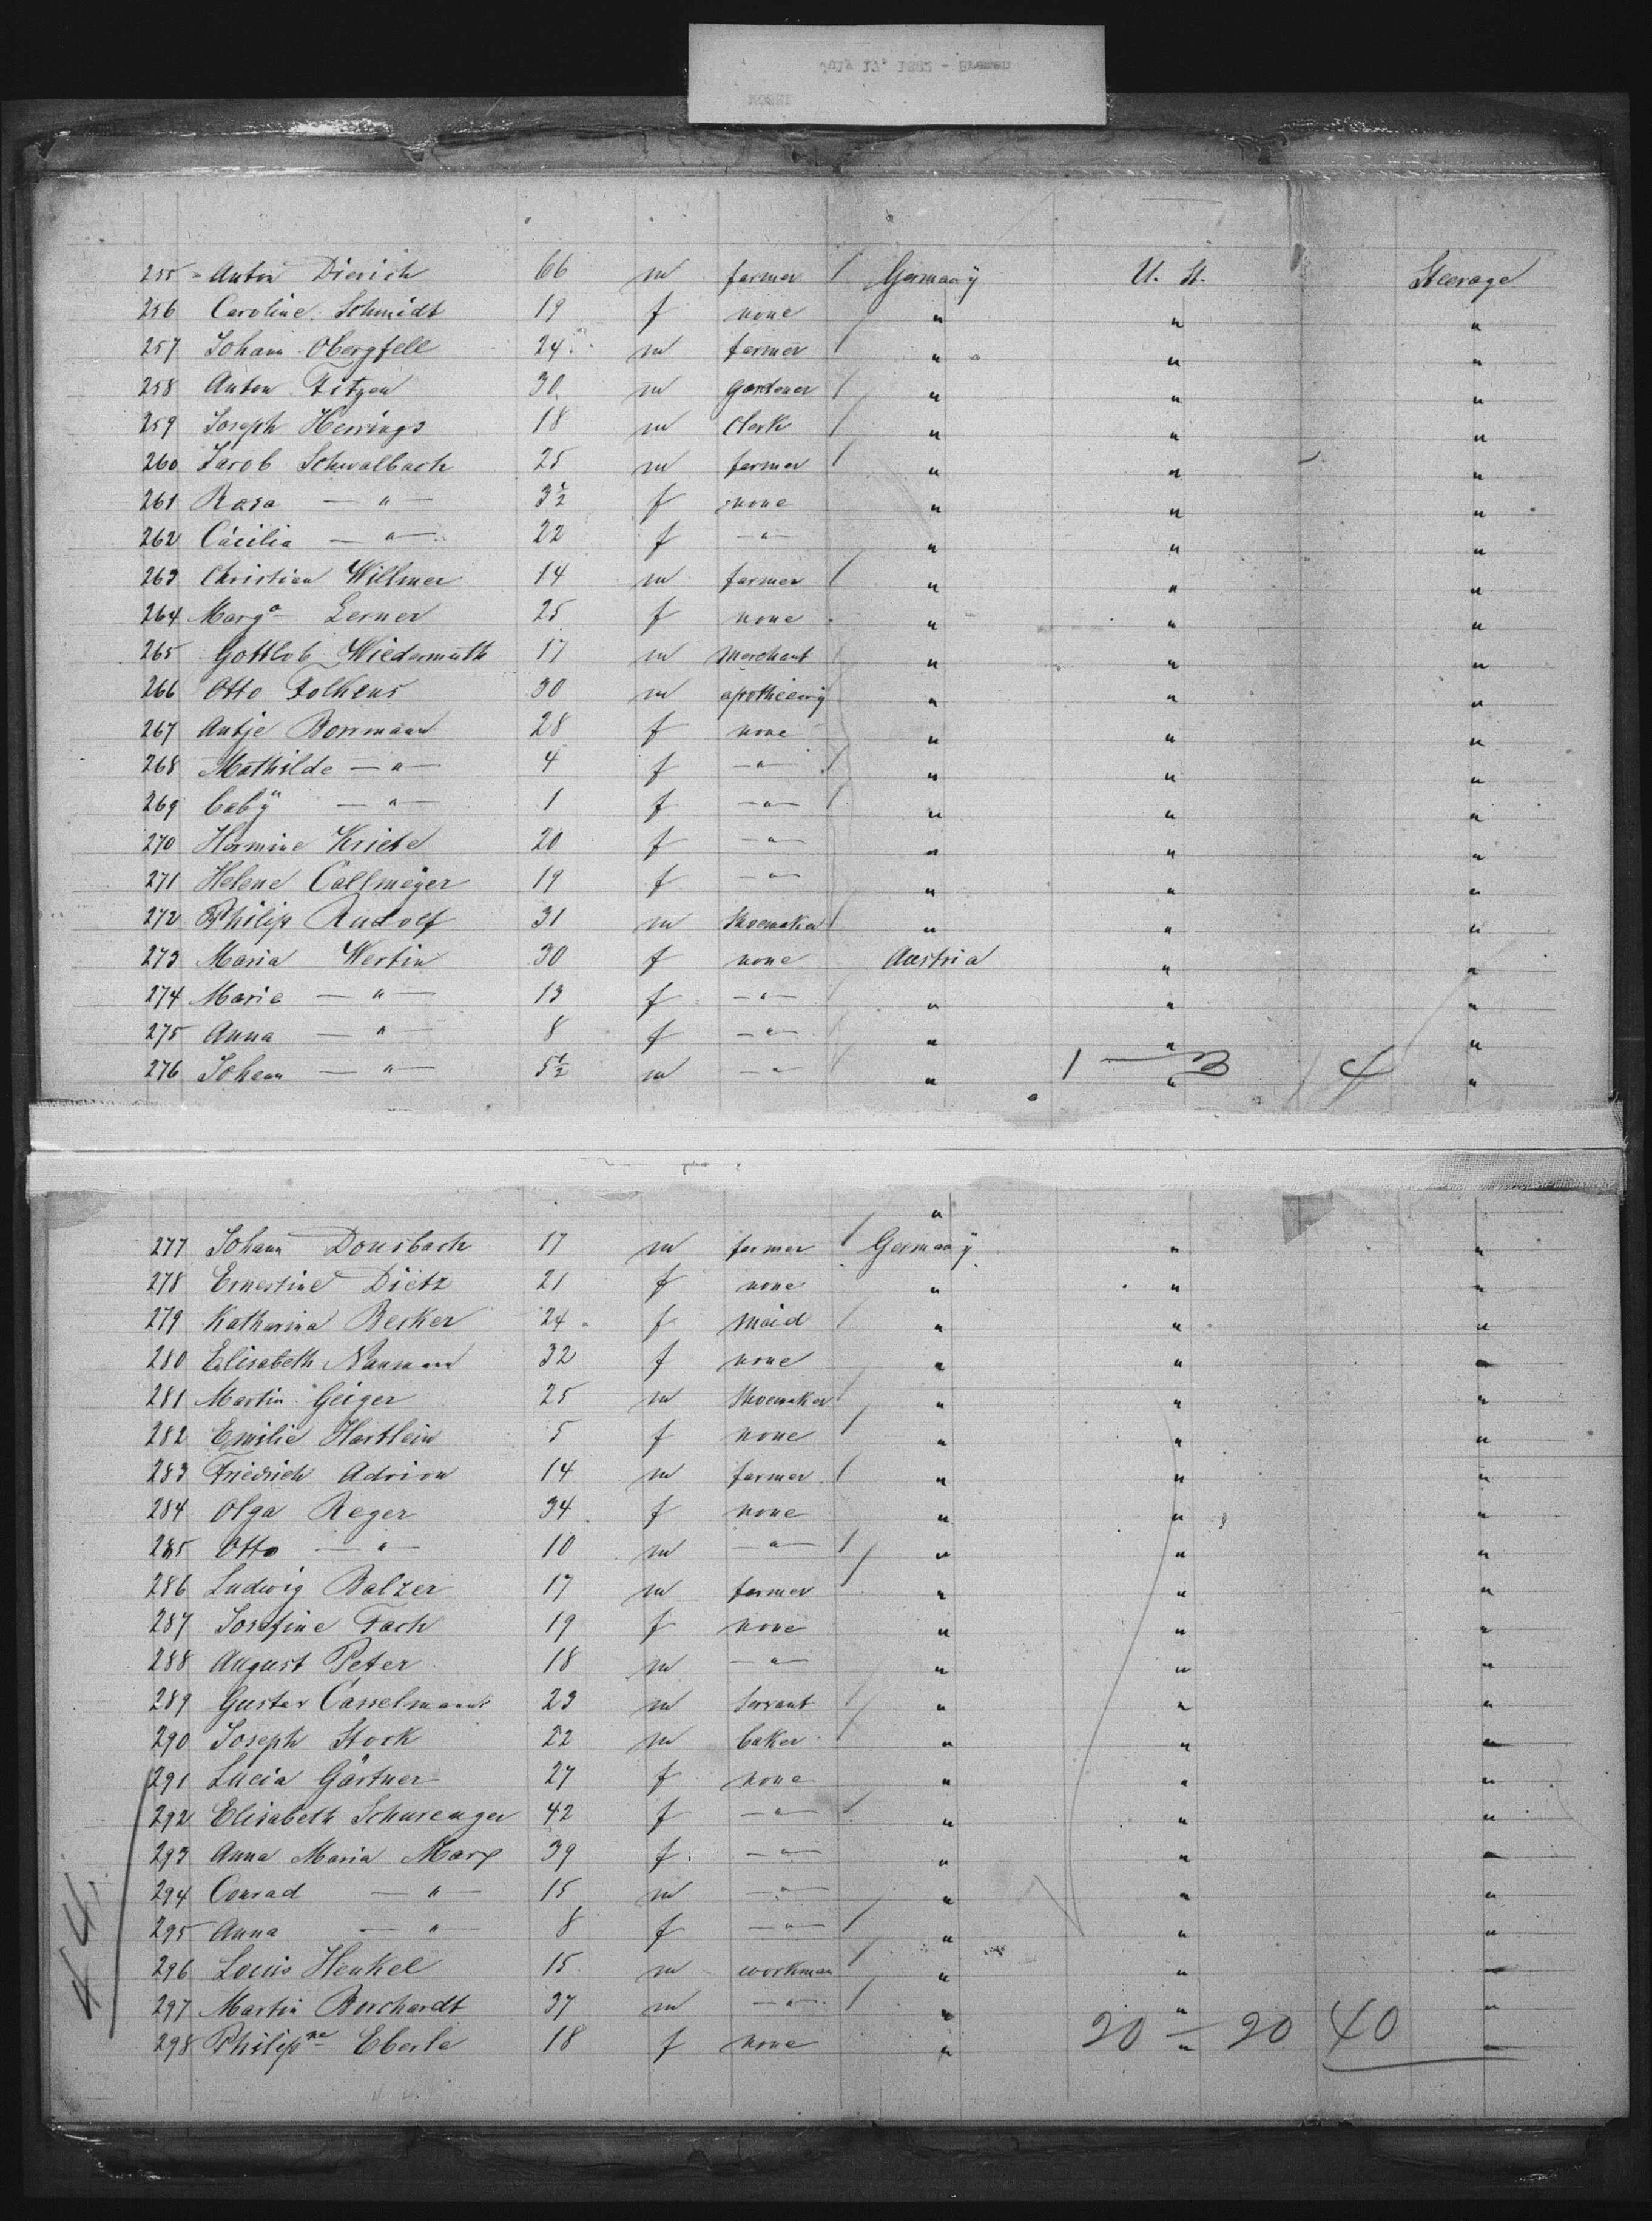 255 Anton Dierich 66 m farmer / Germany U. St. Steerage
256 Caroline Schmidt 19 f none " " "
257 Johann Obergfell 24 m farmer / " " "
258 Anton Fitzen 30 m gardener / " " "
259 Joseph Herrings 18 m Clerk / " " "
260 Jacob Schwalbach 25 m farmer / " " "
261 Rosa — " — 3½ f none " " "
262 Cäcilia — " — 22 f — " — " " "
263 Christian Willmer 14 m farmer / " " "
264 Marga Lerner 25 f none " " "
265 Gottlob Wiedermuth 17 m Merchant / " " "
266 Otto Folkens 30 m " " "
267 Antje Borrmann 28 f none " " "
268 Mathilde — " — 4 f — " — / " " "
269 baby — " — 1 f — " — / " " "
270 Hermine Kriete 20 f — " — " " "
271 Helene Callmeyer 19 f — " — " " "
272 Philip Rudolf 31 m Shoemaker / " " "
273 Maria Wertin 30 f none Austria " "
274 Marie — " — 13 f — " — / " " "
275 Anna — " — 8 f — " — / " " "
276 Johann — " — 5½ m — " — / " " "
1 — 3 / 4
"
277 Johann Donsbach 17 m farmer / Germany " "
278 Ernestine Dietz 21 f none " " "
279 Katharina Becker 24 f Maid / " " "
280 Elisabeth Naumann 32 f none " " "
281 Martin Geiger 25 m Shoemaker / " " "
282 Emilie Hartlein 5 f none / " " "
283 Friedrich Adrion 14 m farmer / " " "
284 Olga Reger 34 f none " " "
285 Otto — " — 10 m — " — / " " "
286 Ludwig Balzer 17 m farmer / " " "
287 Josefine Fach 19 f none " " "
288 August Peter 18 m — " — " " "
289 Gustav Casselmann 23 m Servant / " " "
290 Joseph Stock 22 m baker / " " "
291 Lucia Gärtner 27 f none " " "
292 Elisabeth 42 f — " — / " " "
293 Anna Maria Marx 39 f — " — " " "
294 Conrad — " — 15 m — " — / " " "
295 Anna — " — 8 f — " — / " " "
296 Louis Henkel 15 m workman / " " "
297 Martin Borchardt 37 m — " — / " " "
298 Philipne Eberle 18 f none " " "
20 — 20 40
44.